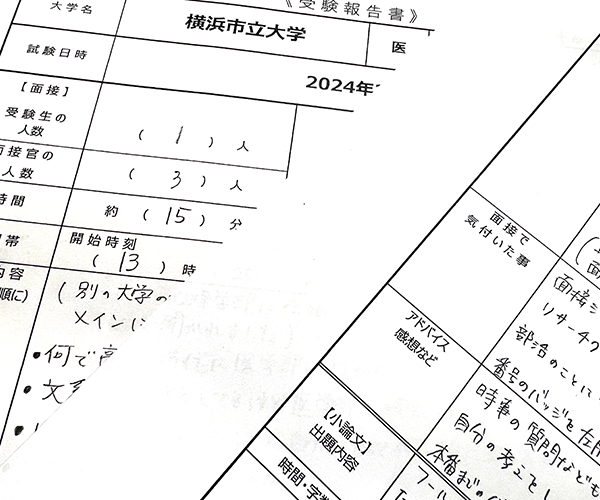 《受験報告書》
大学名
横浜市立大学
医
試験日時
2024年
【面接】
受験生の
人数
( 1 ) 人
面接官の
人数
( 3 ) 人
時間
約 ( 15 ) 分
帯
開始時刻
( 13 ) 時
内容
順に)
( 別の大学の
メインに
・何で高
・文系
面接で
気付いた事
アドバイス
感想など
面接シ
リサーチク
部活のことに
番号のバッジを左胸
時事の質問なども
自分の考えとし
本番まで
【小論文】
出題内容
時間・字数